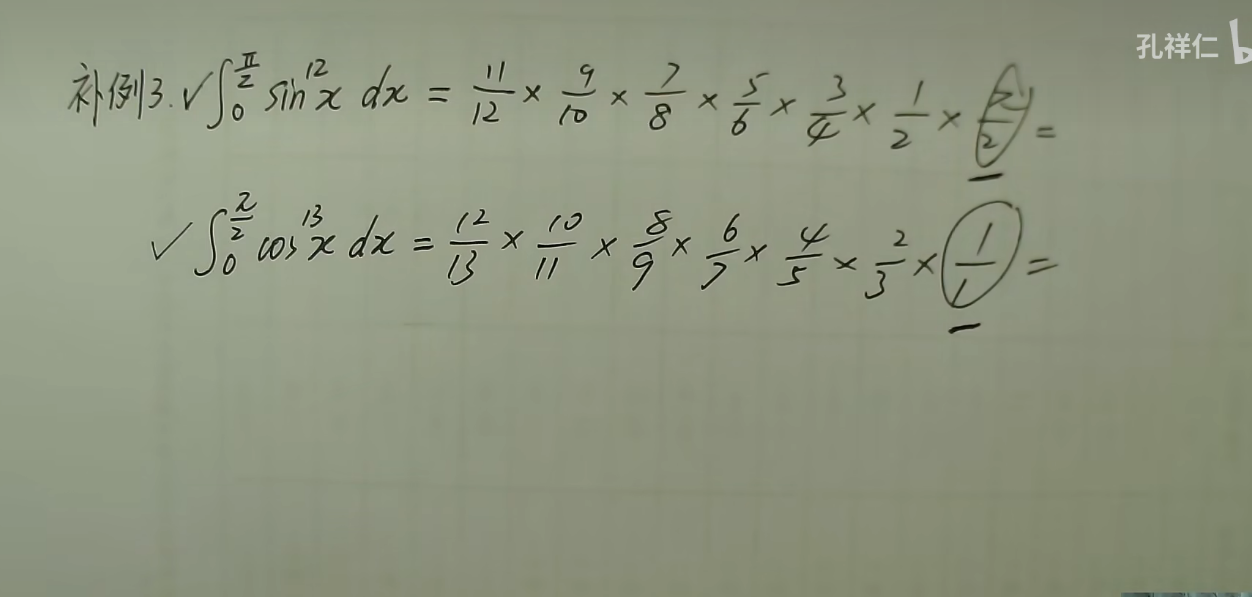 孔祥仁 b
补例3. ✓ ∫₀^{π/2} sin¹²x dx = 11/12 × 9/10 × 7/8 × 5/6 × 3/4 × 1/2 × π/2 =
✓ ∫₀^{π/2} cos¹³x dx = 12/13 × 10/11 × 8/9 × 6/7 × 4/5 × 2/3 × 1/1 =